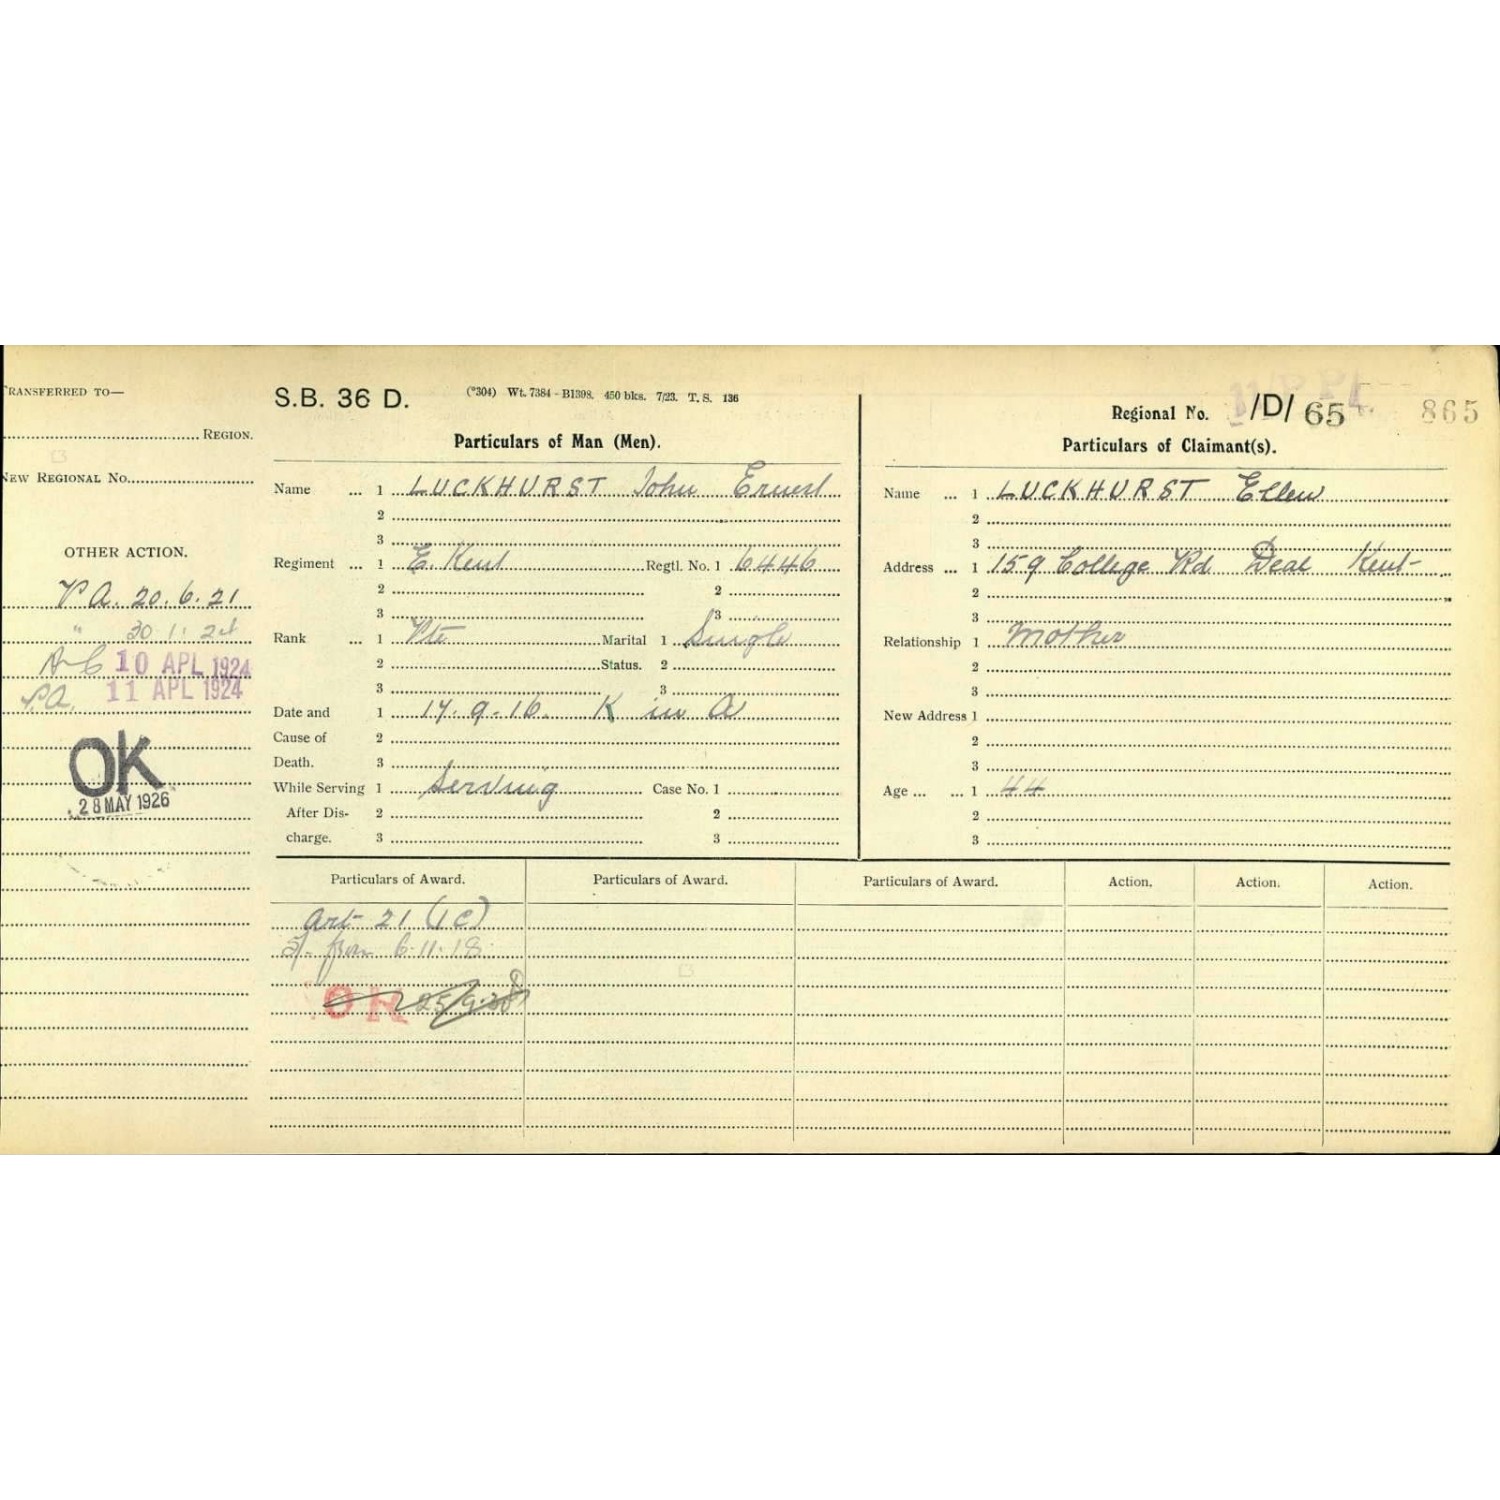 TRANSFERRED TO—
REGION.
NEW REGIONAL NO.
OTHER ACTION.
P A. 20.6.21
" 30.1.24
10 APL 1924
P.A. 11 APL 1924
OK
28 MAY 1926
S.B. 36 D.
(*304) Wt. 7384-B1398. 450 bks. 7/23. T. S. 136
Particulars of Man (Men).
Name ... 1 LUCKHURST John Ernest
2
3
Regiment ... 1 E. Kent Regtl. No. 1 6446
2 2
3 3
Rank ... 1 Pte Marital 1 Single
2 Status. 2
3 3
Date and 1 17.9.16. K in A
Cause of 2
Death. 3
While Serving 1 Serving Case No. 1
After Dis- 2 2
charge. 3 3
Regional No. /D/ 65 865
Particulars of Claimant(s).
Name ... 1 LUCKHURST Ellen
2
3
Address ... 1 159 College Rd Deal Kent
2
3
Relationship 1 Mother
2
3
New Address 1
2
3
Age ... ... 1 44
2
3
Particulars of Award. Particulars of Award. Particulars of Award. Action. Action. Action.
Art 21 (1C)
5/- from 6.11.18.